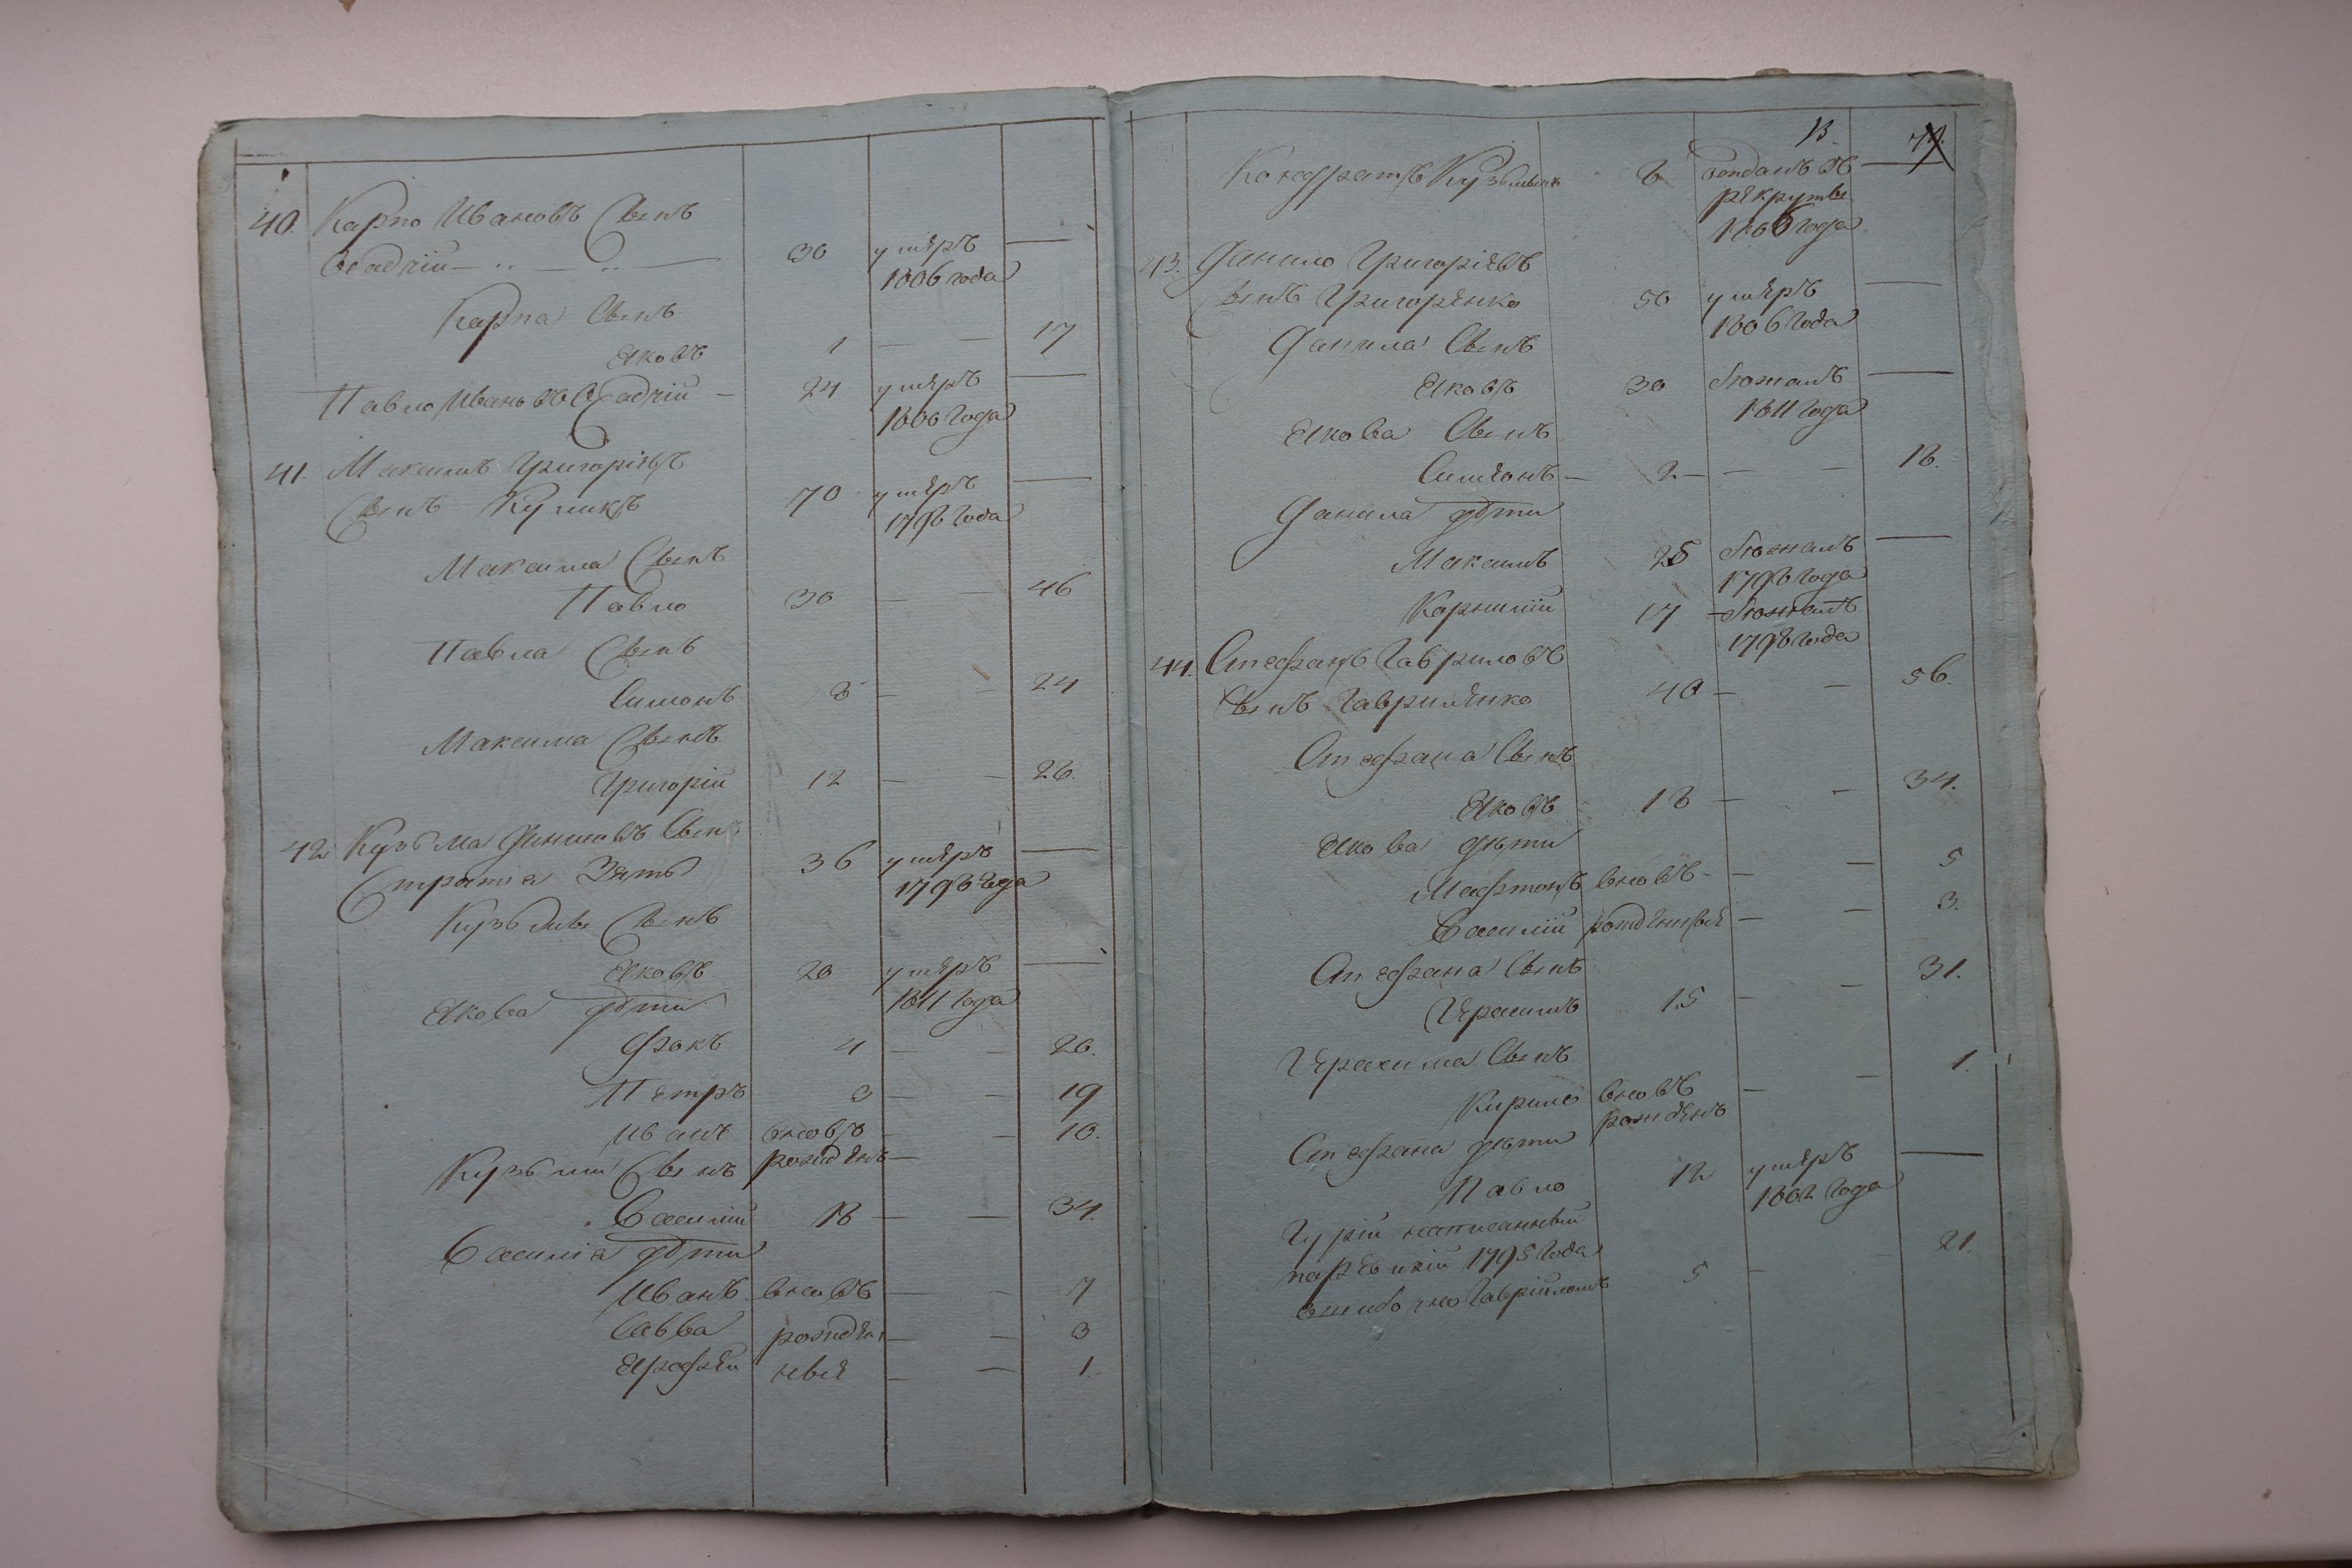 40. Карпо Ивановъ Сынъ
Осадчій — .. — .. — 30 умѣръ —
1806 года
Карпа Сынъ
Яковъ 1 — — 17
Павло Ивановъ Осадчій — 24 умѣръ —
1806 года
41. Максимъ Григоріевъ
Сынъ Куликъ 70 умѣръ —
1796 года
Максима Сынъ
Павло 30 — — 46
Павла Сынъ
Симонъ 8 — — 24
Максима Сынъ
Григорій 12 — — 28.
42 Кузьма Даниловъ Сынъ
Зять 36 умѣръ —
1796 года
Кузьмы Сынъ
Яковъ 20 умѣръ —
1811 года
Якова дѣти
Фокъ 4 — — 20.
Петръ 3 — — 19
Иванъ вновь — — 10.
Кузьми Сынъ рожденъ —
Василій 18 — — 34.
Василія дѣти
Иванъ вновь — — 7
Савва рожден — — 3
Ярофей ные — — 1.
13
Кондратъ Кузьминъ 8 отданъ въ —
рекруты
1806 года
43. Данило Григоріевъ
Сынъ Григоренко 50 умѣръ —
1806 года
Данила Сынъ
Яковъ 30 бѣжалъ —
1811 года
Якова Сынъ
Симеонъ — 2 — — — 18.
Данила дѣти
Максимъ 25 бѣжалъ —
1796 года
Корнилій 17 — бѣжалъ
1798 года
44. Стефанъ Гавриловъ
Сынъ Гавриленко 40 — — 56.
Стефана Сынъ
Яковъ 18 — — 34.
Якова дѣти
вновь — — — 5
Василій рожденные — — 3.
Стефана Сынъ
Герасимъ 15 — — 31.
Герасима Сынъ
Кирило вновь — — 1.
рожденъ
Стефана дѣти
Павло 12 умѣръ —
1802 года
Гурій написанный
по ревизіи 1795 года
ошибочно Гавриломъ 5 — 21.